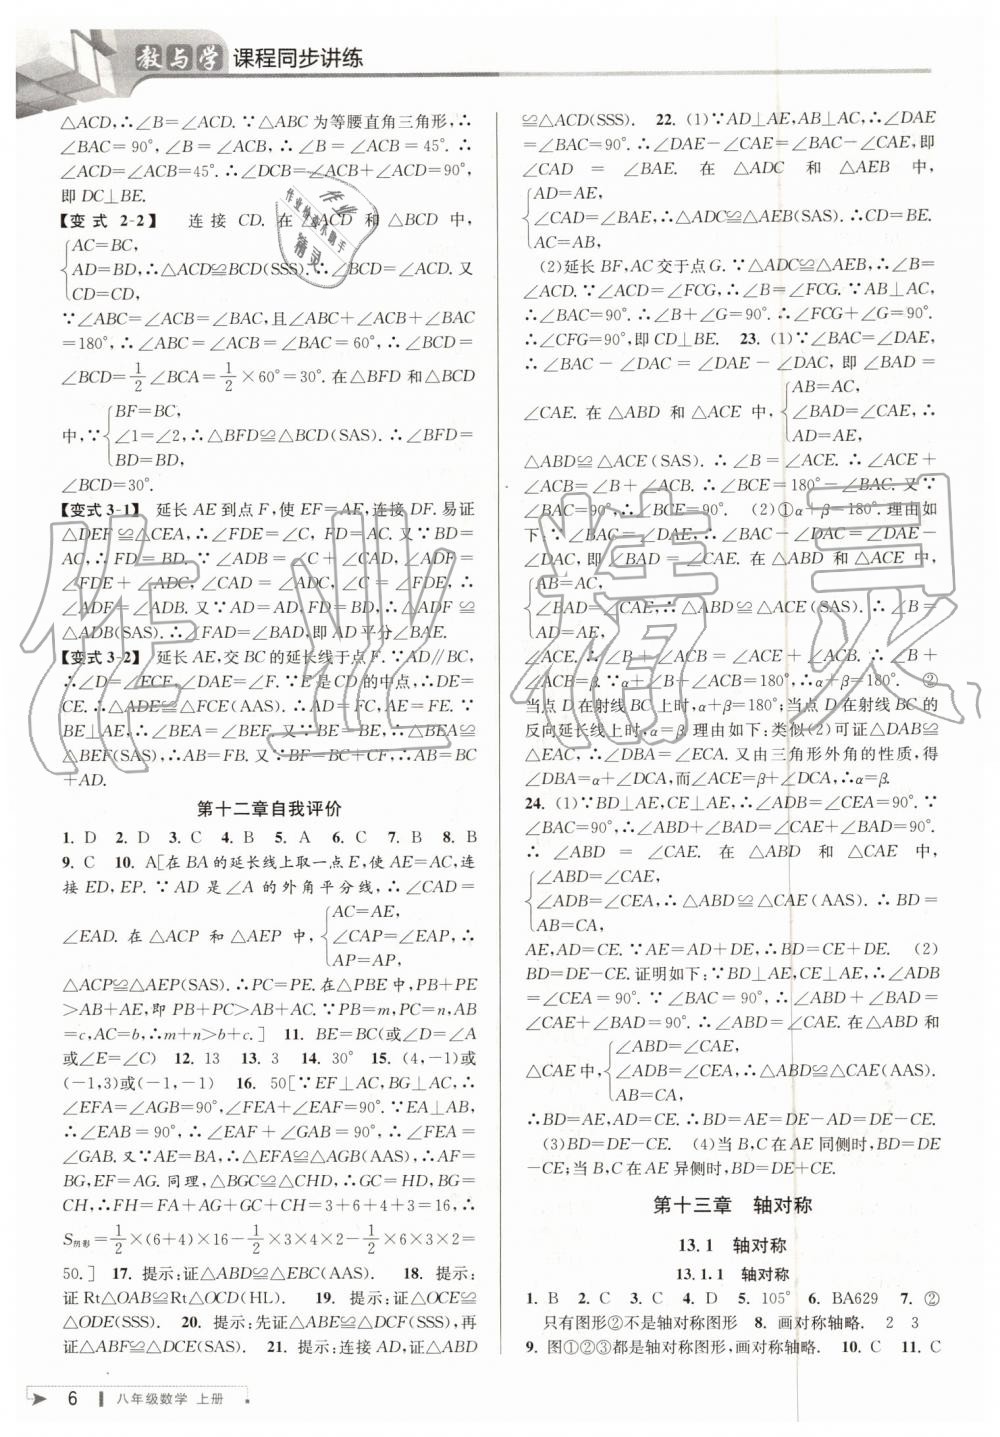 教与学 课程同步讲练
△ACD,∴∠B=∠ACD.∵△ABC为等腰直角三角形,∴
∠BAC=90°,∠B=∠ACB,∴∠B=∠ACB=45°.∴
∠ACD=∠ACB=45°.∴∠DCB=∠ACB+∠ACD=90°,
即DC⊥BE.
【变式 2-2】 连接 CD. 在△ACD 和△BCD 中,
AC=BC,
AD=BD,∴△ACD≌BCD(SSS).∴∠BCD=∠ACD.又
CD=CD,
∵∠ABC=∠ACB=∠BAC,且∠ABC+∠ACB+∠BAC
=180°,∴∠ABC=∠ACB=∠BAC=60°,∴∠BCD=
∠BCD=1/2∠BCA=1/2×60°=30°.在△BFD和△BCD
BF=BC,
中,∵∠1=∠2,∴△BFD≌△BCD(SAS).∴∠BFD=
BD=BD,
∠BCD=30°.
【变式 3-1】 延长AE到点F,使EF=AE,连接DF.易证
△DEF≌△CEA,∴∠FDE=∠C,FD=AC.又∵BD=
AC,∴FD=BD.∵∠ADB=∠C+∠CAD,∠ADF=
∠FDE+∠ADC,∠CAD=∠ADC,∠C=∠FDE,∴
∠ADF=∠ADB.又∵AD=AD,∴△ADF≌
△ADB(SAS).∴∠FAD=∠BAD,即AD平分∠BAE.
【变式 3-2】 延长AE,交BC的延长线于点F.∵AD∥BC,
∴∠D=∠ECF,∠DAE=∠F.∵E是CD的中点,∴DE=
CE.∴△ADE≌△FCE(AAS).∴AD=FC,AE=FE.∵
BE⊥AE,∴∠BEA=∠BEF.又∵BE=BE,∴△BEA≌
△BEF(SAS).∴AB=FB.又∵BF=BC+CF,∴AB=BC
+AD.
第十二章自我评价
1. D 2. D 3. C 4. B 5. A 6. C 7. B 8. B
9. C 10. A[在BA的延长线上取一点E,使AE=AC,连
接ED,EP.∵AD是∠A的外角平分线,∴∠CAD=
AC=AE,
∠EAD.在△ACP和△AEP中,∠CAP=∠EAP,∴
AP=AP,
△ACP≌△AEP(SAS).∴PC=PE.在△PBE中,PB+PE
>AB+AE,即PB+PC>AB+AC.∵PB=m,PC=n,AB
=c,AC=b,∴m+n>b+c.] 11. BE=BC(或∠D=∠A
或∠E=∠C) 12. 13 13. 3 14. 30° 15. (4,-1)或
(-1,3)或(-1,-1) 16. 50[∵EF⊥AC,BG⊥AC,∴
∠EFA=∠AGB=90°,∠FEA+∠EAF=90°.∵EA⊥AB,
∴∠EAB=90°,∴∠EAF+∠GAB=90°.∴∠FEA=
∠GAB.又∵AE=BA,∴△EFA≌△AGB(AAS).∴AF=
BG,EF=AG.同理,△BGC≌△CHD,∴GC=HD,BG=
CH,∴FH=FA+AG+GC+CH=3+6+4+3=16,∴
S阴影=1/2×(6+4)×16-1/2×3×4×2-1/2×6×3×2=
50.] 17. 提示:证△ABD≌△EBC(AAS). 18. 提示:
证Rt△OAB≌Rt△OCD(HL). 19. 提示:证△OCE≌
△ODE(SSS). 20. 提示:先证△ABE≌△DCF(SSS),再
证△ABF≌△DCE(SAS). 21. 提示:连接AD,证△ABD
≌△ACD(SSS). 22. (1)∵AD⊥AE,AB⊥AC,∴∠DAE
=∠BAC=90°.∴∠DAE-∠CAE=∠BAC-∠CAE,即
∠CAD=∠BAE. 在△ADC 和△AEB 中,
AD=AE,
∠CAD=∠BAE,∴△ADC≌△AEB(SAS).∴CD=BE.
AC=AB,
(2)延长BF,AC交于点G.∵△ADC≌△AEB,∴∠B=
∠ACD.∵∠ACD=∠FCG,∴∠B=∠FCG.∵AB⊥AC,
∴∠BAC=90°.∴∠B+∠G=90°.∴∠FCG+∠G=90°.
∴∠CFG=90°,即CD⊥BE. 23. (1)∵∠BAC=∠DAE,
∴∠BAC-∠DAC=∠DAE-∠DAC,即∠BAD=
AB=AC,
∠CAE.在△ABD和△ACE中,∠BAD=∠CAE,∴
AD=AE,
△ABD≌△ACE(SAS).∴∠B=∠ACE.∴∠ACE+
∠ACB=∠B+∠ACB.∴∠BCE=180°-∠BAC.又∵
∠BAC=90°,∴∠BCE=90°. (2)①α+β=180°.理由如
下:∵∠BAC=∠DAE,∴∠BAC-∠DAC=∠DAE-
∠DAC,即∠BAD=∠CAE.在△ABD和△ACE中,
AB=AC,
∠BAD=∠CAE,∴△ABD≌△ACE(SAS),∴∠B=
AD=AE,
∠ACE.∴∠B+∠ACB=∠ACE+∠ACB.∴∠B+
∠ACB=β.∵α+∠B+∠ACB=180°,∴α+β=180°. ②
当点D在射线BC上时,α+β=180°;当点D在射线BC的
反向延长线上时,α=β.理由如下:类似(2)可证△DAB≌
△EAC,∴∠DBA=∠ECA.又由三角形外角的性质,得
∠DBA=α+∠DCA,而∠ACE=β+∠DCA,∴α=β.
24. (1)∵BD⊥AE,CE⊥AE,∴∠ADB=∠CEA=90°.∵
∠BAC=90°,∴∠ABD+∠BAD=∠CAE+∠BAD=90°.
∴∠ABD=∠CAE.在△ABD和△CAE中,
∠ABD=∠CAE,
∠ADB=∠CEA,∴△ABD≌△CAE(AAS).∴BD=
AB=CA,
AE,AD=CE.∵AE=AD+DE,∴BD=CE+DE. (2)
BD=DE-CE.证明如下:∵BD⊥AE,CE⊥AE,∴∠ADB
=∠CEA=90°.∵∠BAC=90°,∴∠ABD+∠BAD=
∠CAE+∠BAD=90°.∴∠ABD=∠CAE.在△ABD和
∠ABD=∠CAE,
△CAE中,∠ADB=∠CEA,∴△ABD≌△CAE(AAS).
AB=CA,
∴BD=AE,AD=CE.∴BD=AE=DE-AD=DE-CE.
(3)BD=DE-CE. (4)当B,C在AE同侧时,BD=DE
-CE;当B,C在AE异侧时,BD=DE+CE.
第十三章 轴对称
13.1 轴对称
13.1.1 轴对称
1. B 2. C 3. C 4. D 5. 105° 6. BA629 7. ②
只有图形②不是轴对称图形 8. 画对称轴略. 2 3
9. 图①②③都是轴对称图形,画对称轴略. 10. C 11. C
6 八年级数学 上册
作业精灵
作业
作业检查小助手
精灵